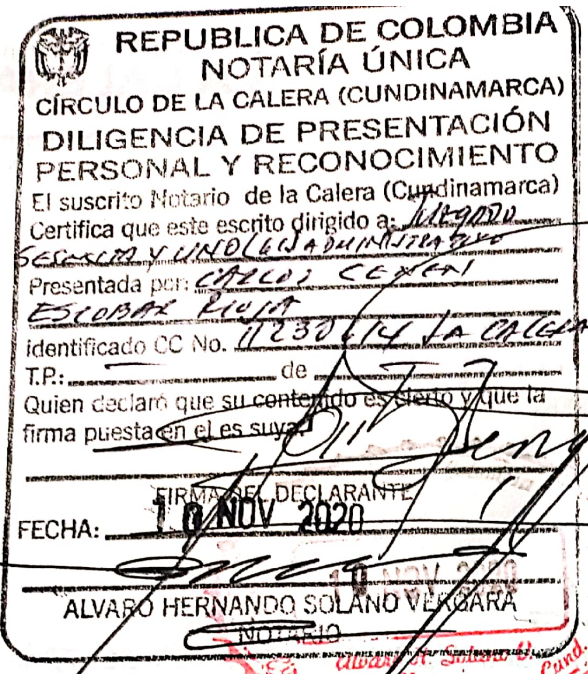 REPUBLICA DE COLOMBIA
NOTARÍA ÚNICA
CÍRCULO DE LA CALERA (CUNDINAMARCA)
DILIGENCIA DE PRESENTACIÓN
PERSONAL Y RECONOCIMIENTO
El suscrito Notario de la Calera (Cundinamarca)
Certifica que este escrito dirigido a: JUZGADO
SESENTA Y UNO (61) ADMINISTRATIVO
Presentada por: CARLOS CENEN
ESCOBAR RIOJA
identificado CC No. LA CALERA
T.P.: de
Quien declaró que su contenido es cierto y que la
firma puesta en el es suya.
FIRMA DEL DECLARANTE
FECHA: 10 NOV 2020
10 NOV 2020
ALVARO HERNANDO SOLANO VERGARA
NOTARIO
Alvaro H. Solano V.
Cund.